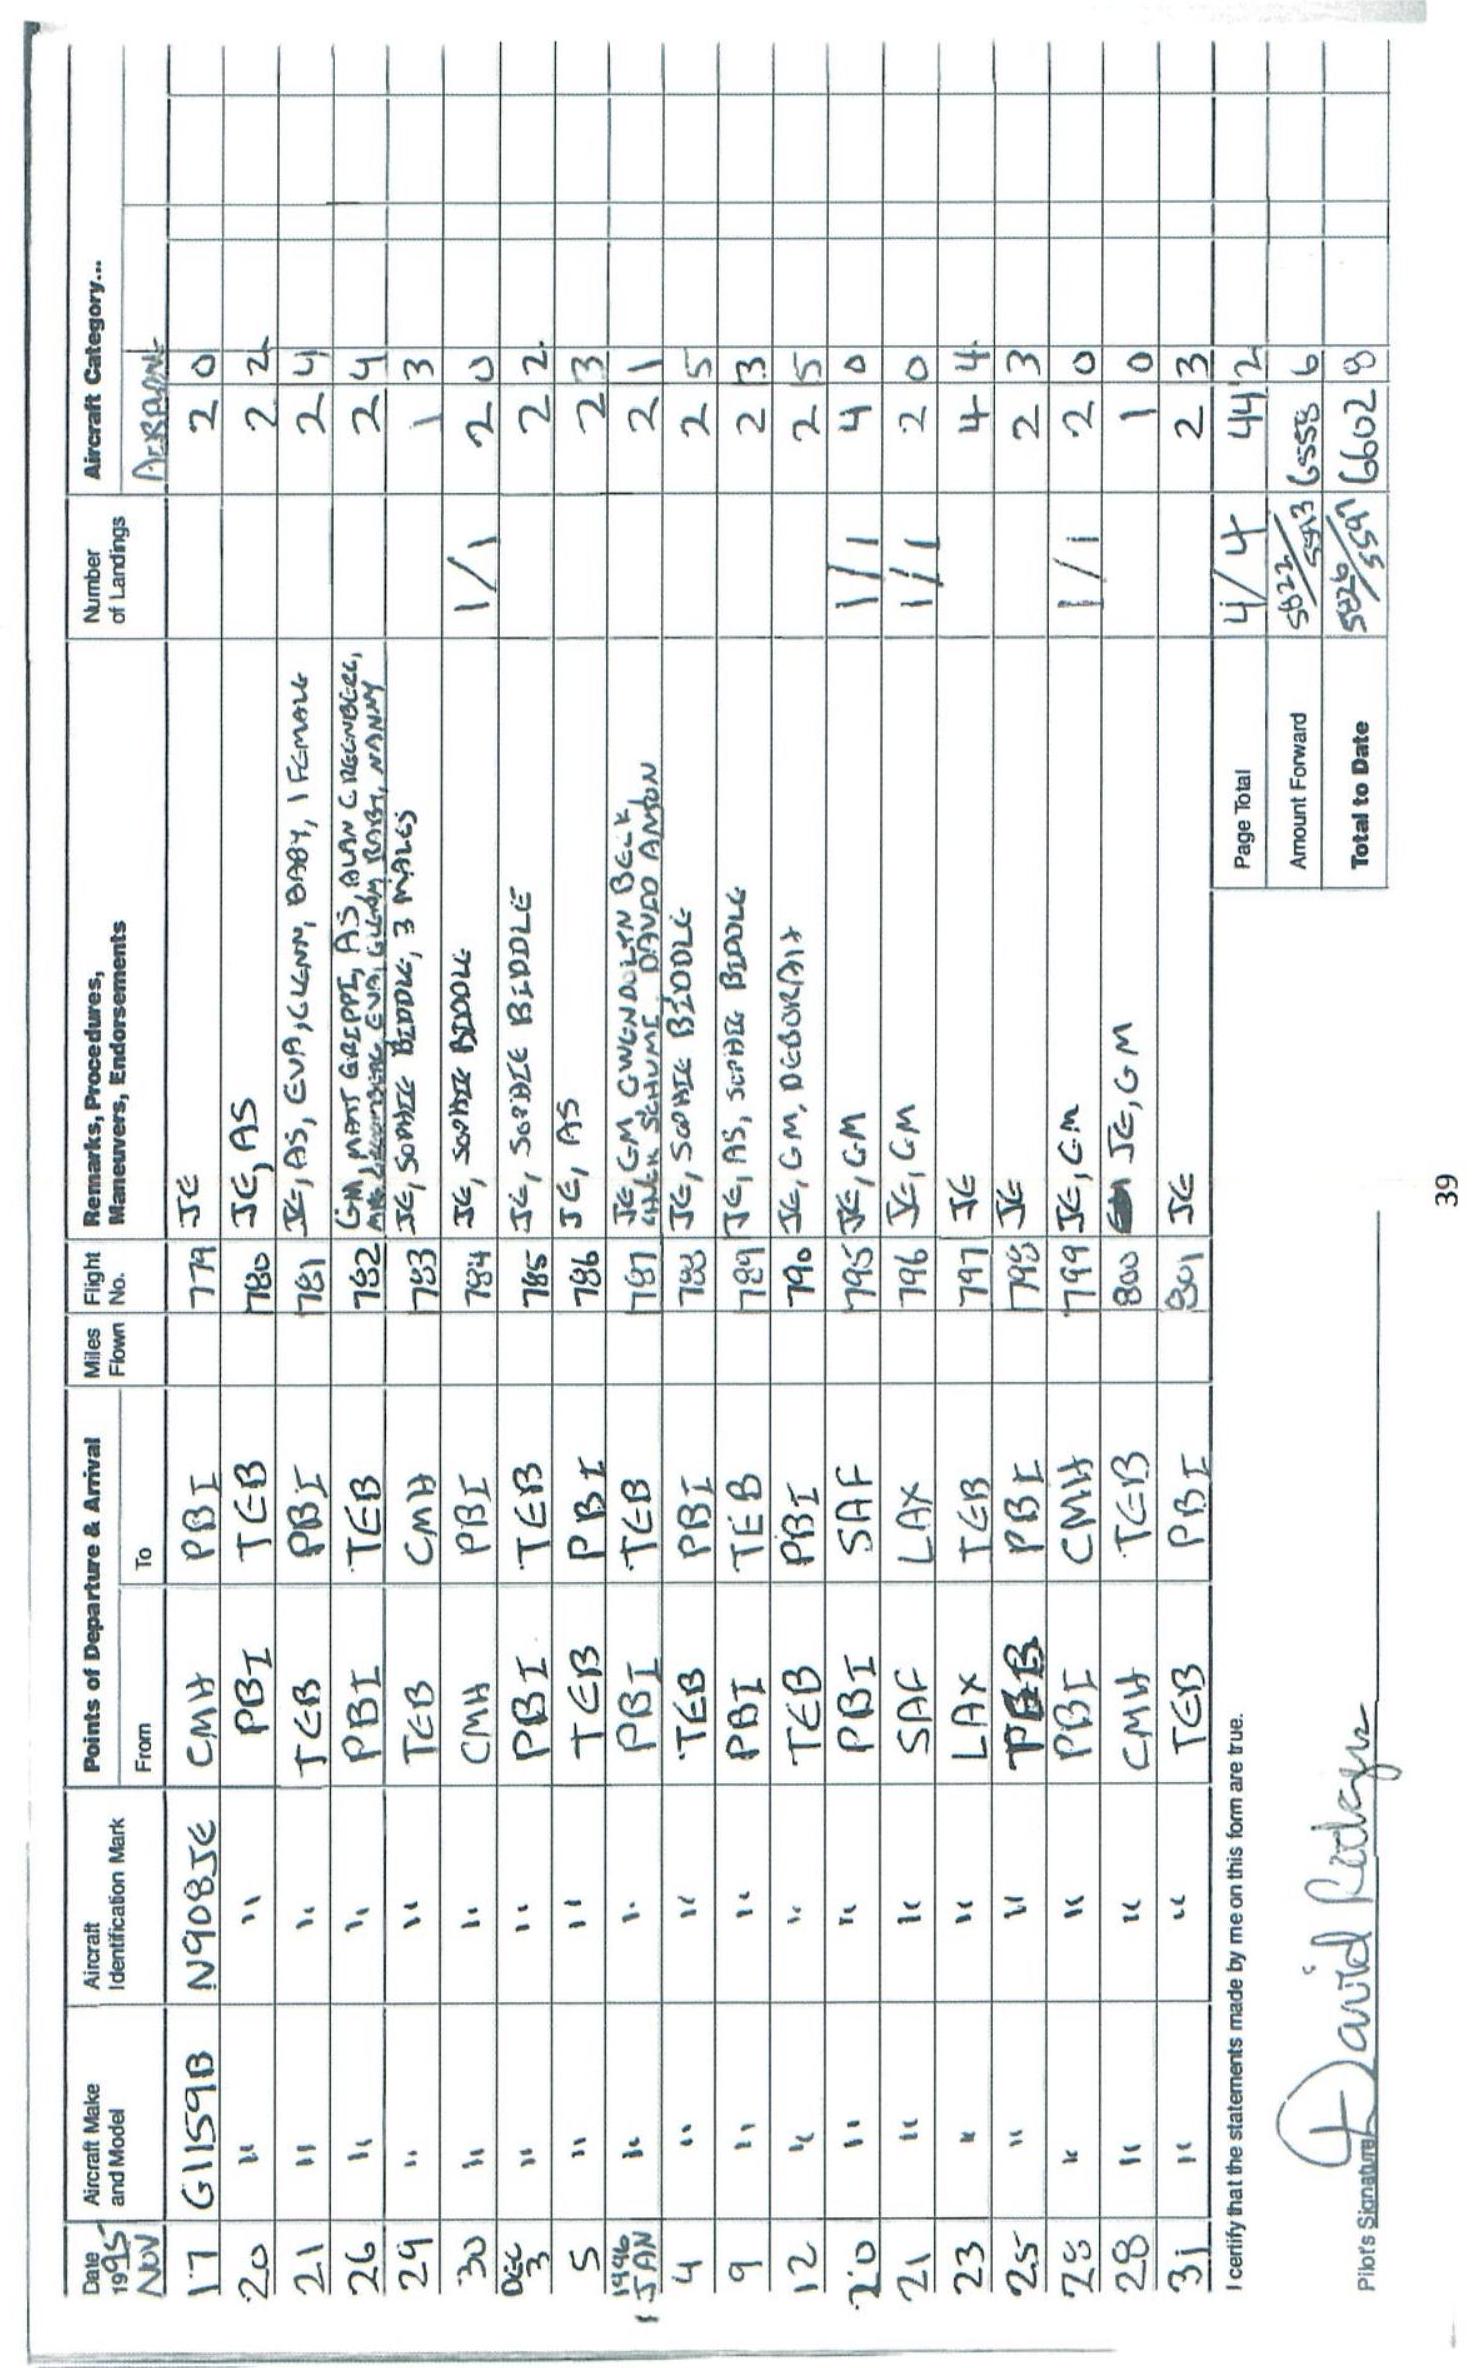 Date 1995 NOV | Aircraft Make and Model | Aircraft Identification Mark | Points of Departure & Arrival From | To | Miles Flown | Flight No. | Remarks, Procedures, Maneuvers, Endorsements | Number of Landings | Aircraft Category...
17 | G1159B | N908JE | CMH | PBI | 779 | JE | 2 0
20 | " | " | PBI | TEB | 780 | JE, AS | 2 2
21 | " | " | TEB | PBI | 781 | JE, AS, EVA, GLENN, BABY, 1 FEMALE | 2 4
26 | " | " | PBI | TEB | 782 | GM, MATT GRIPPI, AS, ALAN GREENBERG, EVA, GLENN, BABY, NANNY | 2 4
29 | " | " | TEB | CMH | 783 | JE, SOPHIE BIDDLE, 3 MALES | 1 3
30 | " | " | CMH | PBI | 784 | JE, SOPHIE BIDDLE | 1/1 | 2 0
DEC 3 | " | " | PBI | TEB | 785 | JE, SOPHIE BIDDLE | 2 2
5 | " | " | TEB | PBI | 786 | JE, AS | 2 3
1996 1 JAN | " | " | PBI | TEB | 787 | JE, GM, GWENDOLYN BECK, DAVID | 2 1
4 | " | " | TEB | PBI | 788 | JE, SOPHIE BIDDLE | 2 5
9 | " | " | PBI | TEB | 789 | JE, AS, SOPHIE BIDDLE | 2 3
12 | " | " | TEB | PBI | 790 | JE, GM, DEBORAH | 2 5
20 | " | " | PBI | SAF | 795 | JE, GM | 1/1 | 4 0
21 | " | " | SAF | LAX | 796 | JE, GM | 1/1 | 2 0
23 | " | " | LAX | TEB | 797 | JE | 4 4
25 | " | " | TEB | PBI | 798 | JE | 2 3
28 | " | " | PBI | CMH | 799 | JE, GM | 1/1 | 2 0
28 | " | " | CMH | TEB | 800 | JE, GM | 1 0
31 | " | " | TEB | PBI | 801 | JE | 2 3
I certify that the statements made by me on this form are true. | Page Total | 4/4 | 44 2
Amount Forward | 5822/5593 | 6558 6
Total to Date | 5826/5597 | 6602 8
Pilot's Signature David Rodgers
39